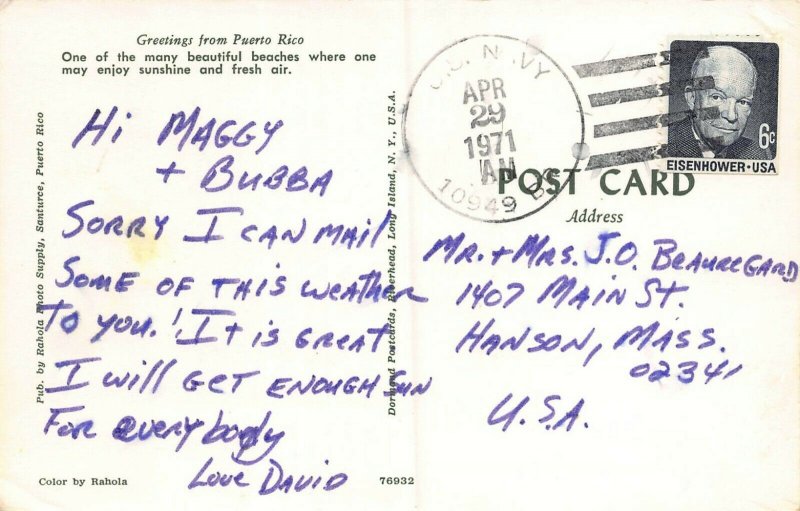 Greetings from Puerto Rico
One of the many beautiful beaches where one
may enjoy sunshine and fresh air.
Hi MAGGY
+ BUBBA
SORRY I CAN MAIL
SOME OF THIS WEATHER
TO YOU.! It is GREAT
I will GET ENOUGH SUN
For everybody
Love DAVID
Color by Rahola
76932
Pub. by Rahola Photo Supply, Santurce, Puerto Rico
Dormand Postcards, Riverhead, Long Island, N. Y., U.S.A.
U.S. NAVY
APR
29
1971
AM
10949
6c
EISENHOWER·USA
POST CARD
Address
MR. + MRS. J.O. BEAUREGARD
1407 MAIN ST.
HANSON, MASS.
02341
U.S.A.